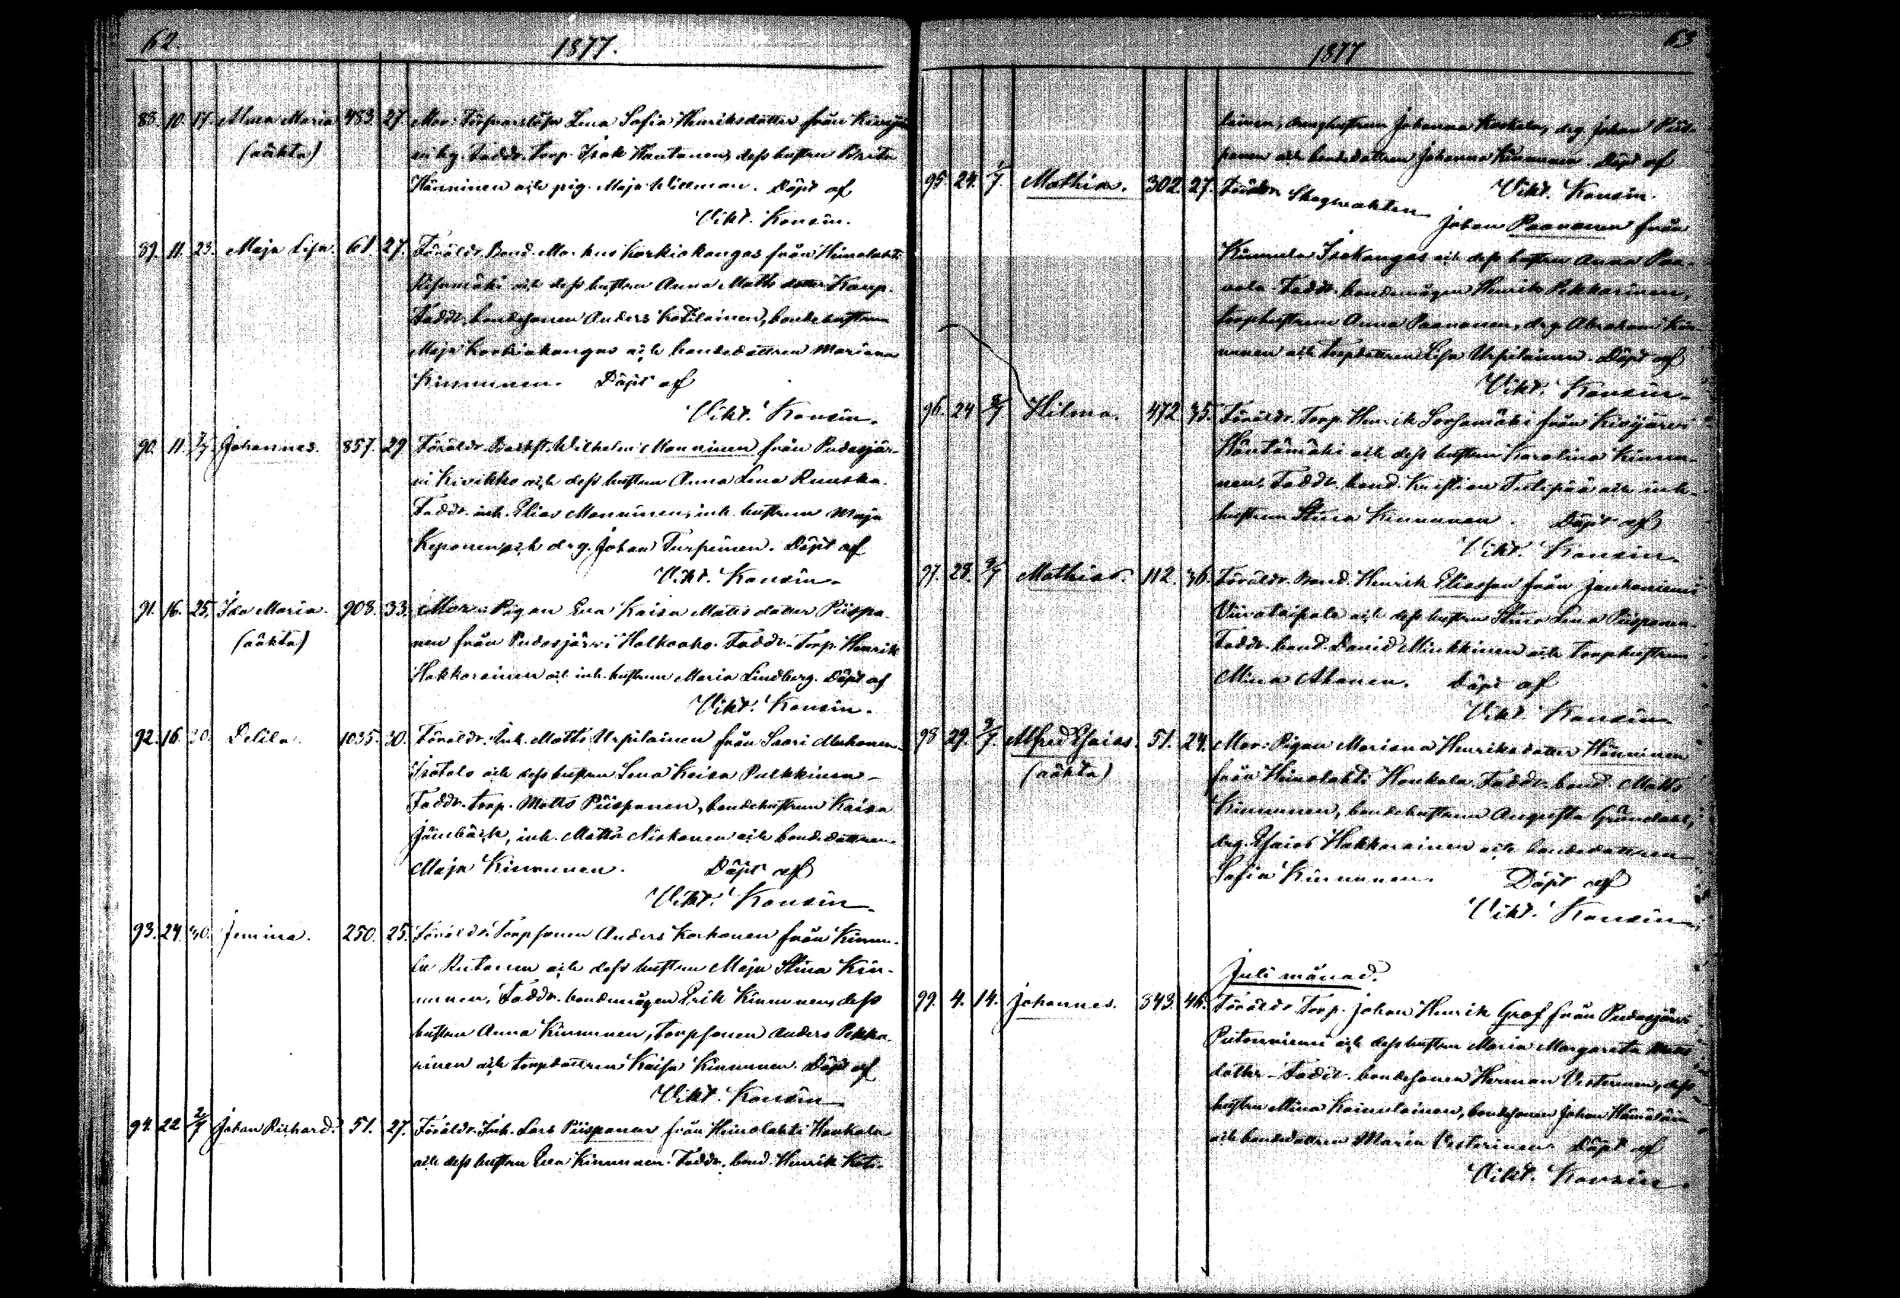 62.
1877.
88. 10. 17. Alma Maria 483. 27. Mor: Försvarslösa Lena Sofia Henriksdotter från Kivijär
(oäkta) vi kg. Faddr. torp. Isak Hautanen, dess hustru Brita
Hänninen och pig. Maja Willman. Döpt af
Vikt. Konsin.
89. 11. 23. Maja Lisa. 61. 27. Föräldr. Bond. Markus Korkiakangas från Himalahti
och dess hustru Anna Mattsdotter Karp.
Faddr. bondesonen Anders Kotilainen, bondehustrun
Maja Korkiakangas och bondedottren Mariana
Kinnunen. Döpt af
Vikt. Konsin.
90. 11. 2/7. Johannes. 857. 29. Föräldr. Backst. Wilhelm Manninen från Pudasjär-
vi Kivikko och dess hustru Anna Lena Ruuska.
Faddr. inh. Elias Manninen, inh. hustrun Maja
Keponen och drg. Johan Turpeinen. Döpt af
Vikt. Konsin.
91. 16. 25. Ida Maria. 908. 33. Mor: Pigan Eva Kaisa Mattsdotter Piispa-
(oäkta) nen från Pudasjärvi Halkoaho. Faddr. Torp. Henrik
Hakkarainen och inh. hustrun Maria Lindberg. Döpt af
Vikt. Konsin.
92. 16. 30. Delila. 1035. 30. Föräldr. Inh. Matts Urpilainen från Saari Mahonen
Isotalo och dess hustru Lena Kaisa Pulkkinen.
Faddr. torp. Matts Piispanen, bondehustrun Kaisa
Jämbäck, inh. Matts Niskanen och bondedottren
Maja Kinnunen. Döpt af
Vikt. Konsin.
93. 24. 30. Jemina. 250. 25. Föräldr. Torpsonen Anders Korhonen från Kinnu-
la och dess hustru Maja Stina Kin-
nunen. Faddr. bondemågen Erik Kinnunen, dess
hustru Anna Kinnunen, torpsonen Anders Pekka-
rinen och torpdottren Kaisa Kinnunen. Döpt af
Vikt. Konsin
94. 22. 2/7 Johan Richard. 51. 27. Föräldr. Inh. Lars Piispanen från Himalahti Haukala
och dess hustru Eva Kinnunen. Faddr. bond. Henrik Koti-
63
1877
lainen, hustrun Johanna Koskela, drg. Johan Piis-
panen och bondedottren Johanna Kinnunen. Döpt af
Vikt. Konsin.
95. 24. 1/7. Mathias. 302. 27. Föräldr. Skogvakten Johan Paananen från
Kinnula Isokangas och dess hustru Anna Paa-
vola. Faddr. bondemågen Henrik Pekkarinen,
torphustrun Anna Paananen, drg. Abraham Kin-
nunen och torpdottren Lisa Urpilainen. Döpt af
Vikt. Konsin.
96. 24. 8/7 Hilma. 472. 35. Föräldr. Torp. Henrik Sorsamäki från Kivijärvi
Häntämäki och dess hustru Karolina Kinnu-
nen. Faddr. bond. Kristian Tulipää och inh.
hustrun Stina Kinnunen. Döpt af
Vikt. Konsin.
97. 28. 8/7 Mathias. 112. 36. Föräldr. Bond. Henrik Eliasson från Jauhoniemi
och dess hustru Stina Lena Piispanen.
Faddr. bond. David Minkkinen och torphustrun
Mina Ahonen. Döpt af
Vikt. Konsin
98. 29. 9/7. Alfred Esaias. 51. 24. Mor: Pigan Mariana Henriksdotter Hänninen
(oäkta) från Himalahti Haukala. Faddr. bond. Matts
Kinnunen, bondehustrun Augusta Gröndahl,
drg. Esaias Hakkarainen och bondedottren
Sofia Kinnunen. Döpt af
Vikt. Konsin
Juli månad.
99. 4. 14. Johannes. 343. 46. Föräldr. Torp. Johan Henrik Graf från Pudasjärvi
och dess hustru Maria Margareta Matts
dotter. Faddr. bondesonen Herman Vesterinen, dess
hustru Mina Kainulainen, bondesonen Johan Hämäläin
och bondedottren Maria Vesterinen. Döpt af
Vikt. Konsin.